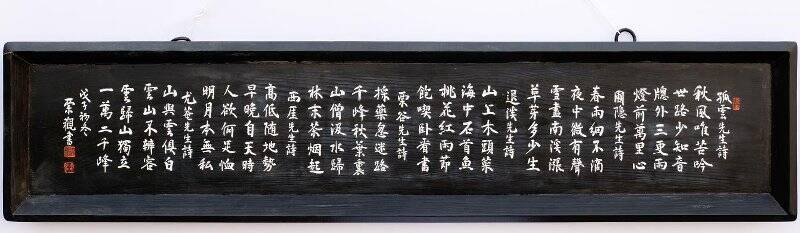 孤雲先生詩
秋風唯苦吟
世路少知音
牕外三更雨
燈前萬里心
圃隱先生詩
春雨細不滴
夜中微有聲
雪盡南溪漲
草芽多少生
退溪先生詩
山上木頭菜
海中石首魚
桃花紅雨節
飮喫臥看書
栗谷先生詩
採藥忽迷路
千峰秋葉裏
山僧汲水歸
林末茶烟起
西厓先生詩
高低隨地勢
早晩自天時
人欲何足恤
明月本無私
尤菴先生詩
山與雲俱白
雲山不辨容
雲歸山獨立
一萬二千峰
戊子初冬
觀書